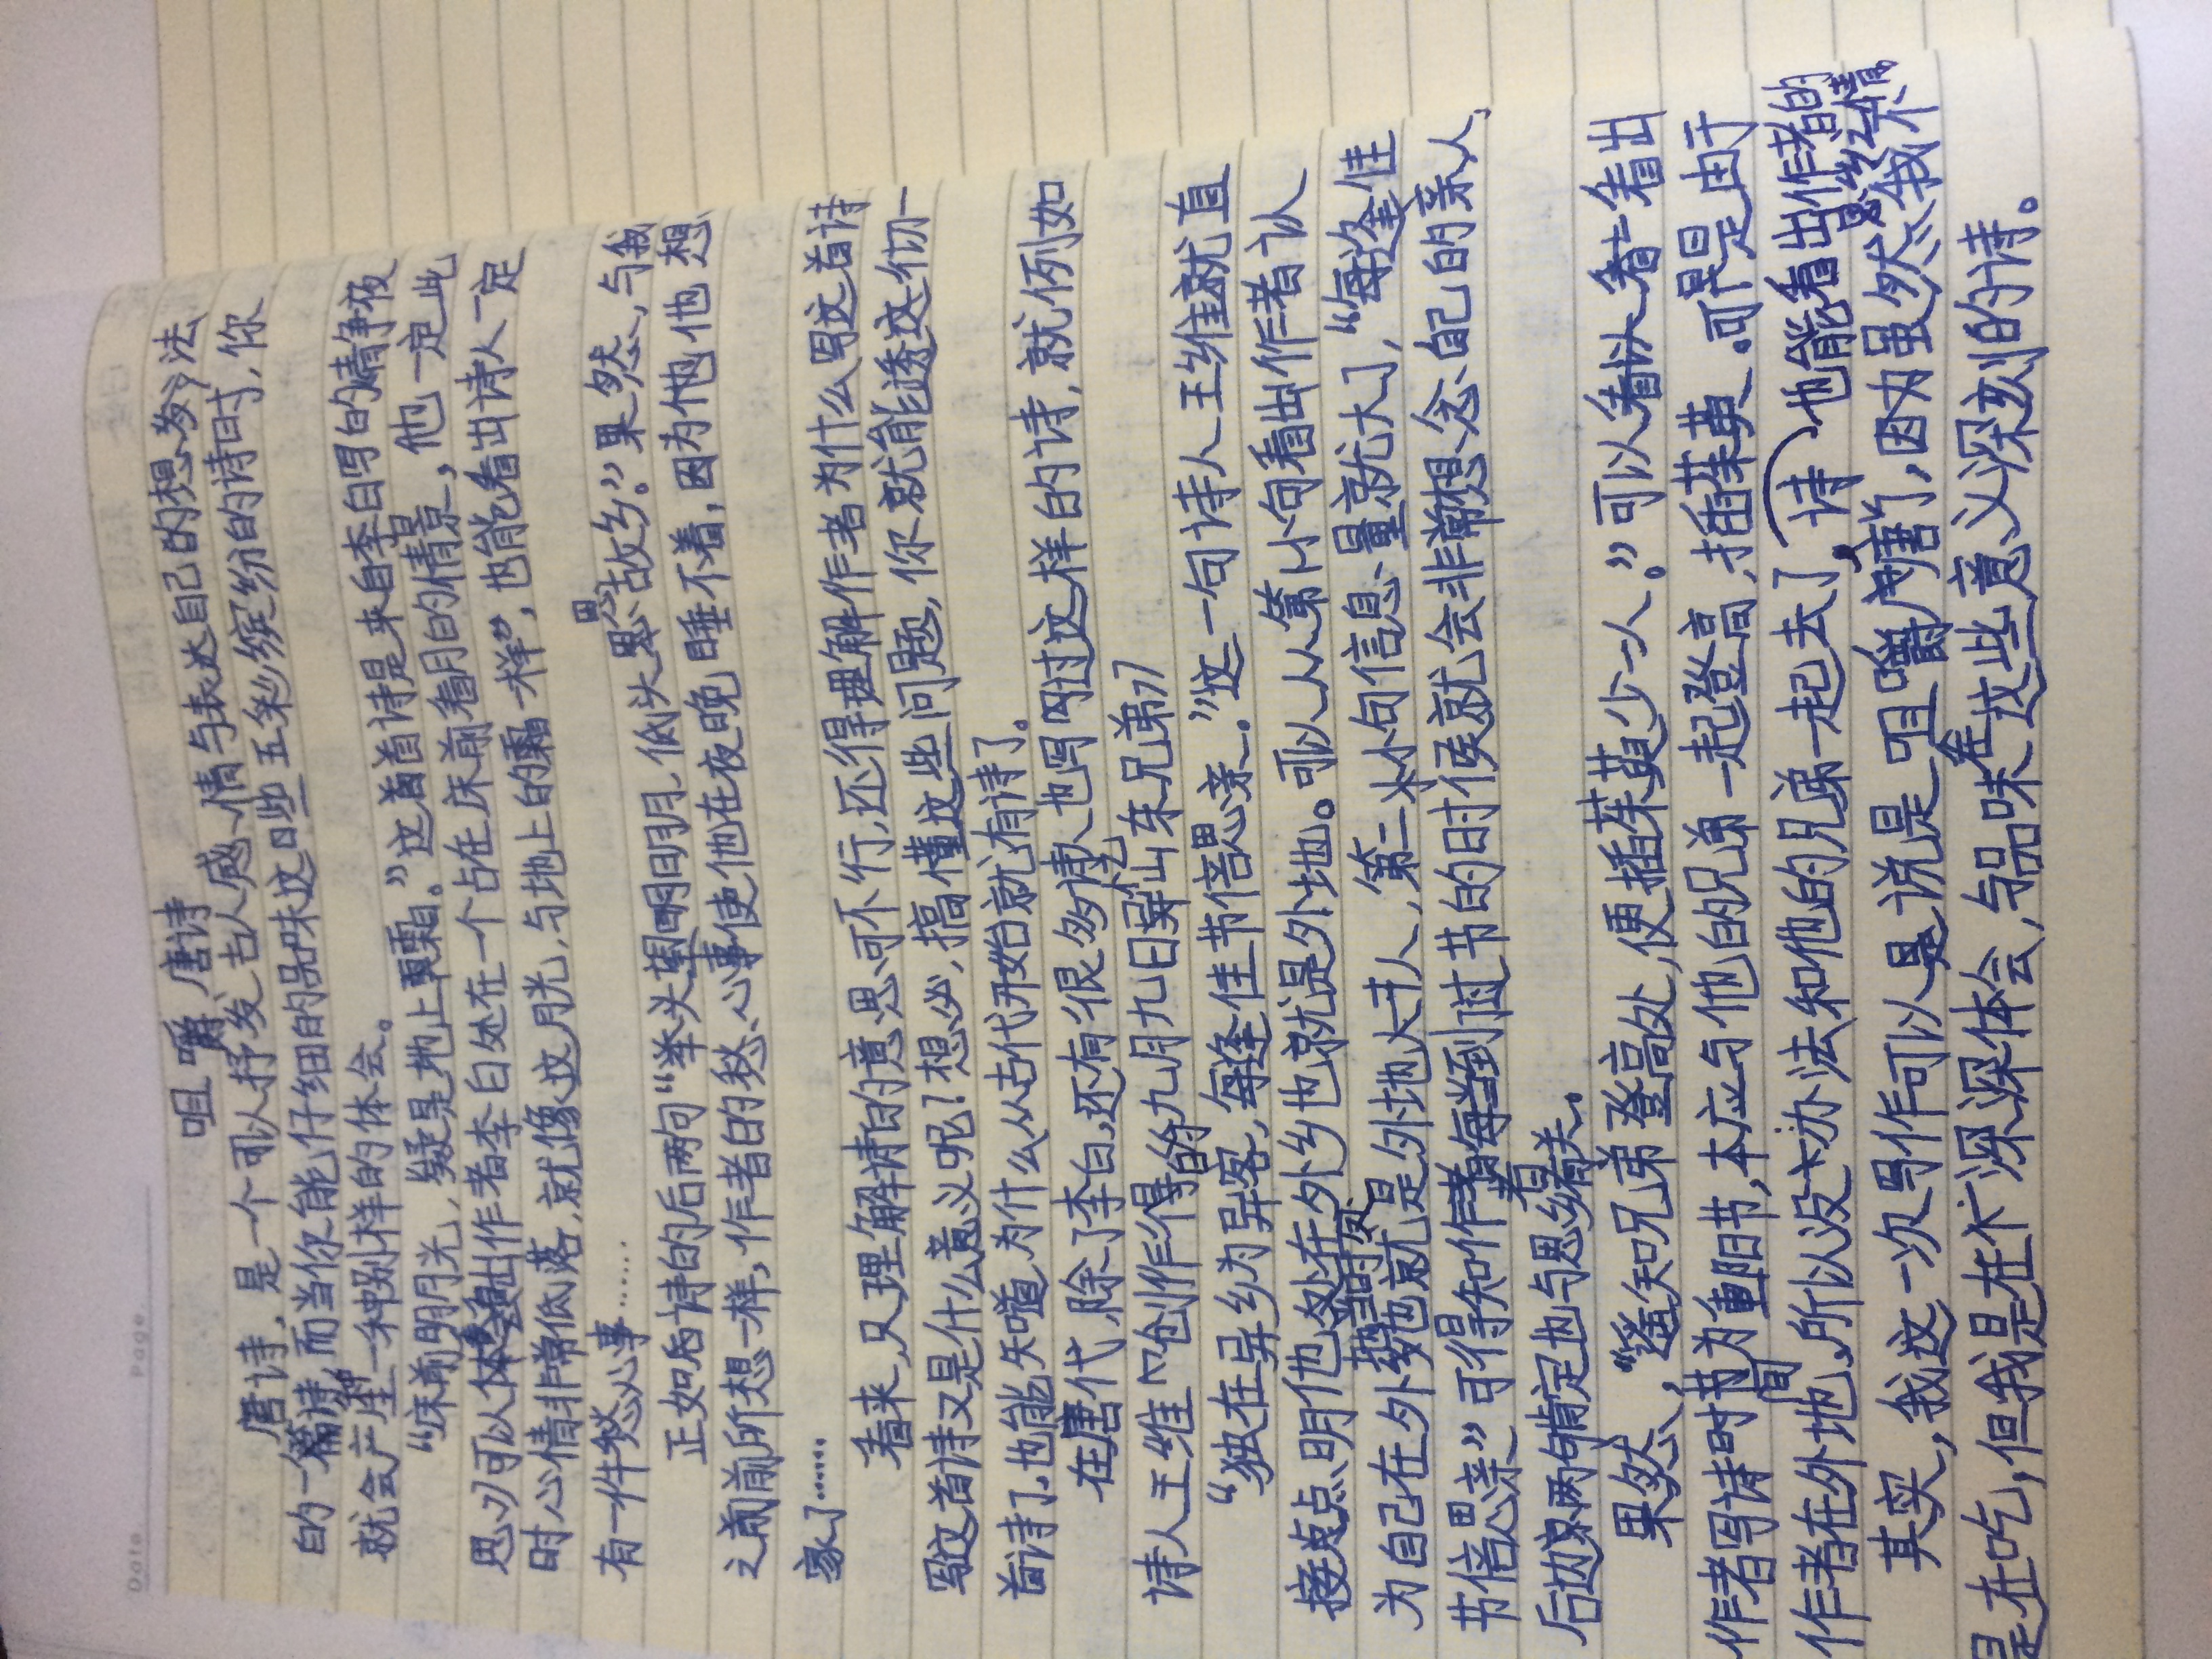 Date Page
咀嚼唐诗
唐诗,是一个可以抒发古人感情与表达自己的想法
的一篇诗,而当你能仔细的品味这些五彩缤纷的诗时,你
就会产生一种别样的体会。
“床前明月光,疑是地上霜。”这首诗是来自李白写的静夜
思,可以体会出作者李白处在一个占在床前看月的情景,他一定此
时心情非常低落,就像这月光,与地上的霜一样”,也能看出诗人一定
有一件愁心事……
正如后诗的后两句“举头望明月,低头思故乡。”果然,与我
之前所想一样,作者的愁心事使他在夜晚睡不着,因为他他想
家了……
看来,只理解诗的意思可不行,还得理解作者为什么写这首诗
写这首诗又是什么意义呢?想必,搞懂这些问题,你就能透这们一
首诗了,也能知道为什么从古代开始就有诗了。
在唐代,除了李白,还有很多诗人也写过这样的诗,就例如
诗人王维创作的九月九日忆山东兄弟
“独在异乡为异客,每逢佳节倍思亲。”这一句诗人王维就直
接点明他处在外乡也就是外地。可以从第一小句看出作者认
为自己在外乡也就是外地人,第二小句信息量就大了,“每逢佳
节倍思亲”可得知作者每当到过节的时侯就会非常想念自己的亲人,
后边两句肯定也与思绪有关。
果然,“遥知兄弟登高处,便插茱萸少一人。”可以看出
作者写诗时节为重阳节,本应与他的兄弟一起登高,插茱萸。可是由于
作者在外地,所以没办法和他的兄弟一起去了,诗也能看出作者的思乡之情
其实,我这一次写作可以是说是咀嚼唐诗,因为虽然我不
是在吃,但我是在深深体会,与品味在这些意义深刻的诗。